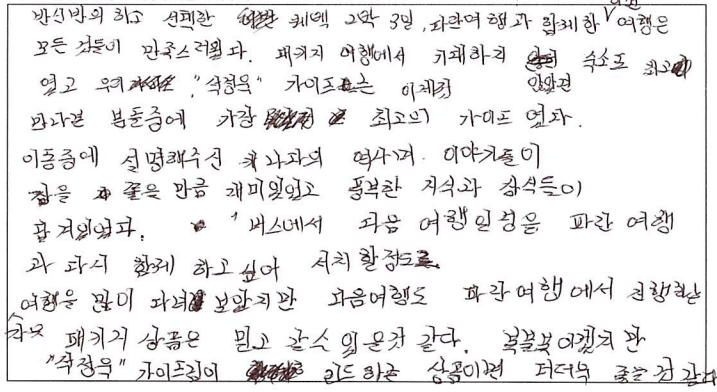 반신반의 하고 선택한 퀘벡 2박 3일, 파란여행과 함께한 이번 여행은
모든 것들이 만족스러웠다. 패키지 여행에서 기대하지 않았던 숙소도 최고
였고 우리 "석정욱" 가이드는 이제껏
만나본 분들중에 가장 최고의 가이드 였다.
이동중에 설명해주신 캐나다의 역사며 이야기들이
잠을 쫓을 만큼 재미있었고 풍부한 지식과 상식들이
담겨있었다. 버스에서 다음 여행일정을 파란 여행
과 다시 함께 하고 싶어 서치 할정도로
여행을 많이 다녀 보았지만 다음여행도 파란여행에서 진행하는
패키지 상품은 믿고 갈수 있을것 같다. 복불복이겠지만
"석정욱" 가이드님이 리드하는 상품이면 더더욱 좋을 것 같다